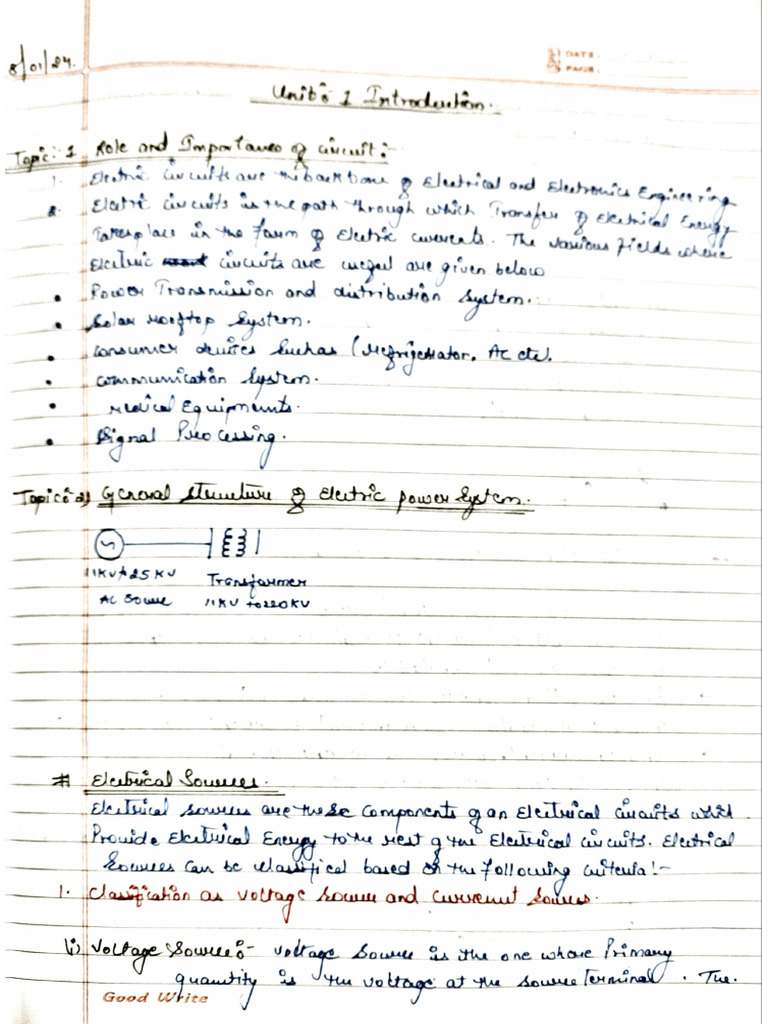 8/01/24.
DATE:
PAGE:
Unit: 1 Introduction.
Topic: 1 Role and Importance of circuit:
1. Electric circuits are the back bone of Electrical and Electronics Engineering
2. Electric circuits is the path through which Transfer of Electrical Energy
Takes place in the Form of Electric currents. The various fields where
Electric circuits are useful are given below
• Power Transmission and distribution System.
• Solar rooftop System.
• consumer devices such as (Refrigerator. AC etc).
• communication System.
• Medical Equipments.
• Signal Processing.
Topic: 2) General structure of Electric power System.
11KV to 25 KV Transformer
AC Source 11KV to 220KV
# Electrical Sources.
Electrical sources are these components of an Electrical circuits which
Provide Electrical Energy to the rest of the Electrical circuits. Electrical
Sources can be classifical based on the following criteria:-
1. Classification as voltage source and current sources.
(i) Voltage Source:- voltage source is the one whose Primary
quantity is the voltage at the source Terminal. The.
Good Write